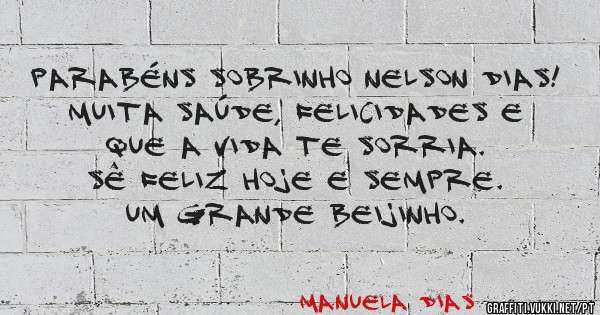 PARABÉNS SOBRINHO NELSON DIAS!
MUITA SAÚDE, FELICIDADES E
QUE A VIDA TE SORRIA.
SÊ FELIZ HOJE E SEMPRE.
UM GRANDE BEIJINHO.
MANUELA DIAS
GRAFFITI.VUKKI.NET/PT